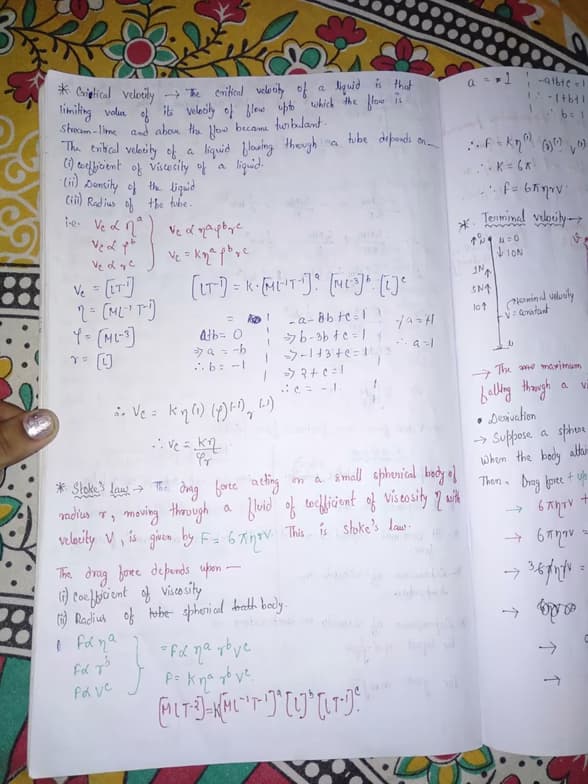 * Critical velocity → The critical velocity of a liquid is that
limiting value of its velocity of flow upto which the flow is
stream-line and above the flow became turbulant.
The critical velocity of a liquid flowing through a tube depends on —
(i) coefficient of Viscocity of a liquid.
(ii) Density of the liquid
(iii) Radius of the tube.
i.e. Vc ∝ η^a
Vc ∝ ρ^b
Vc ∝ r^c
Vc ∝ η^a ρ^b r^c
Vc = Kη^a ρ^b r^c
Vc = [LT⁻¹]
η = [ML⁻¹T⁻¹]
ρ = [ML⁻³]
r = [L]
[LT⁻¹] = K·[ML⁻¹T⁻¹]^a · [ML⁻³]^b · [L]^c
a+b = 0
⇒ a = -b
∴ b = -1
-a-3b+c = 1
⇒ b-3b+c = 1
⇒ -1+3+c = 1
⇒ 2+c = 1
∴ c = -1
∴ a = 1
∴ Vc = Kη^(1) (ρ)^(-1) r^(-1)
∴ Vc = Kη/ρr
* Stoke's Law → The drag force acting on a small spherical body of
radius r, moving through a fluid of coefficient of viscosity η with
velocity V, is given by F = 6πηrV. This is stoke's law.
The drag force depends upon —
(i) coefficient of viscosity
(ii) Radius of tube spherical body.
F ∝ η^a
F ∝ r^b
F ∝ V^c
= F ∝ η^a r^b V^c
F = Kη^a r^b V^c
[MLT⁻²] = K[ML⁻¹T⁻¹]^a [L]^b [LT⁻¹]^c
-a+b+c = 1
-1+b+1
b = 1
∴ K = 6π
∴ F = 6πηrV
* Terminal velocity →
u = 0
↓ 10N
1N↑
5N↑
10↑
Terminal velocity
V = constant
→ The maximum
falling through a
• Derivation
→ Suppose a sphere
When the body attai
Then, Drag force + up
→ 6πηrV
→ 6πηrV =